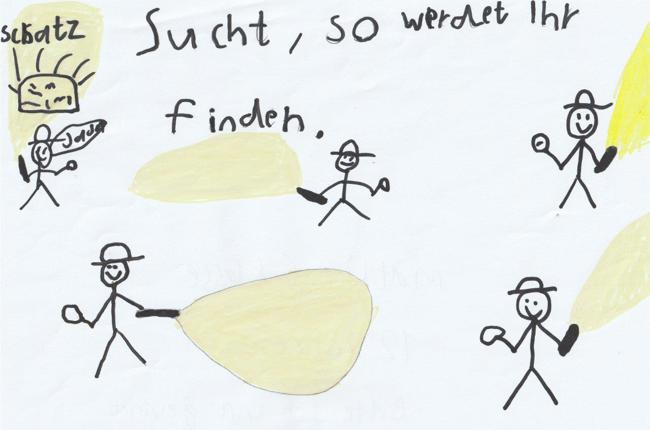 Schatz
Sucht, so werdet Ihr
finden.